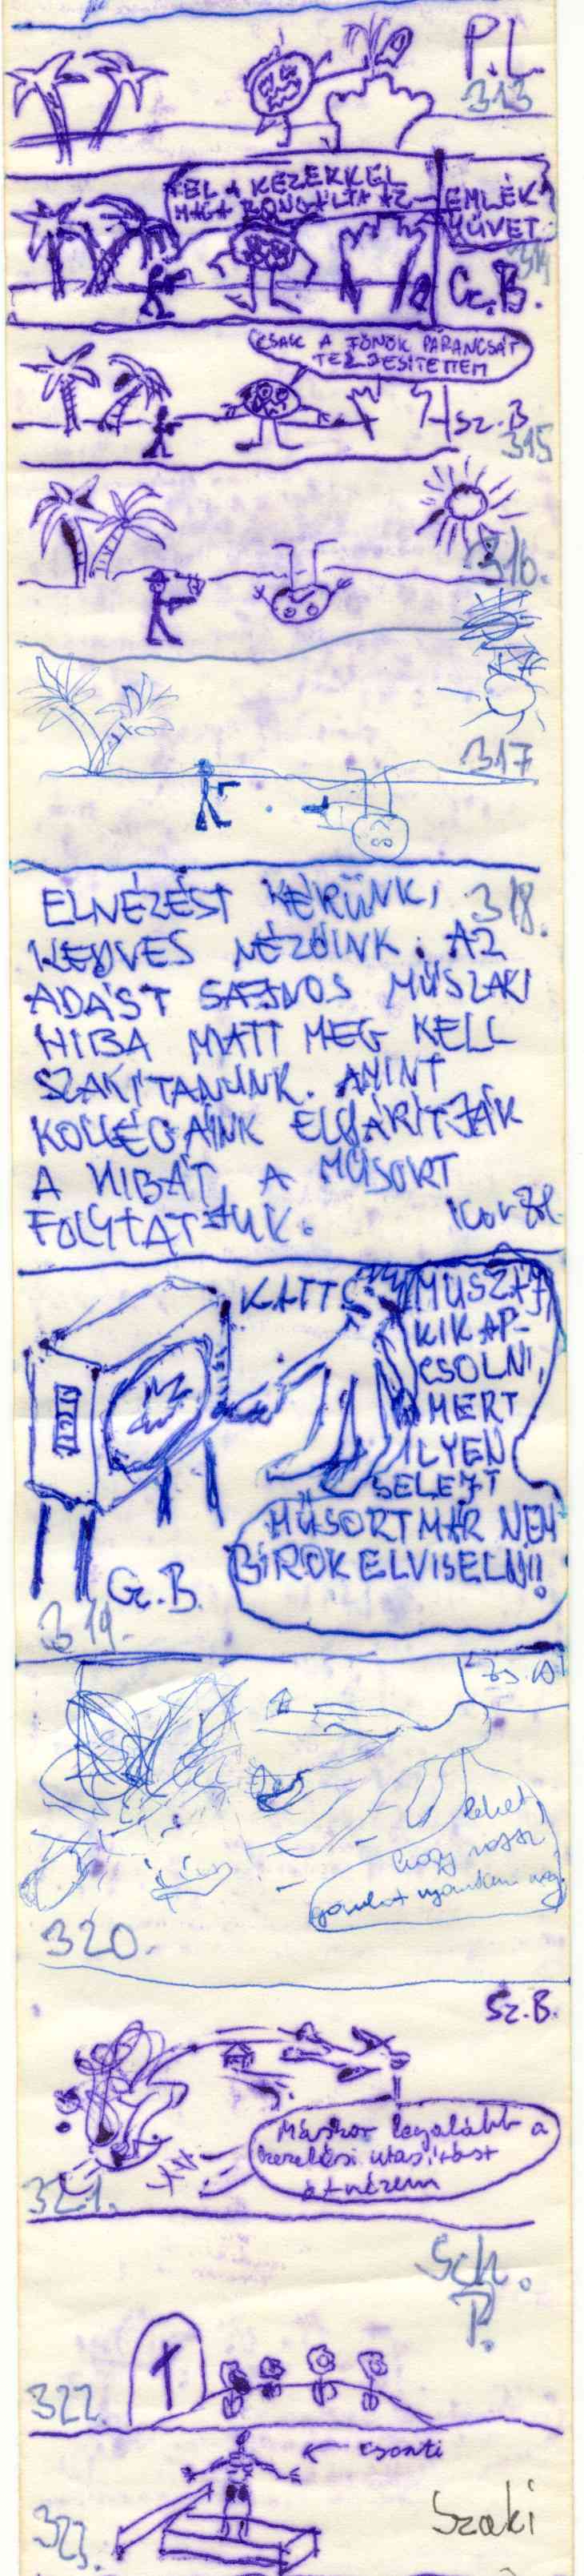 P.L.
313
FEL A KEZEKKEL
MAGA RONGÁLTA AZ
EMLÉK
MŰVET
314
G.B.
CSAK A FŐNÖK PARANCSÁT
TELJESÍTETTEM
Sz.B
315
316.
317
ELNÉZÉST KÉRÜNK,
318.
KEDVES NÉZŐINK. AZ
ADÁST SAJNOS MŰSZAKI
HIBA MIATT MEG KELL
SZAKÍTANUNK. AMINT
KOLLÉGÁINK ELHÁRÍTJÁK
A HIBÁT, A MŰSORT
FOLYTATJUK.
KATT
MUSZÁJ
KIKAP-
CSOLNI,
MERT
ILYEN
SELEJT
MŰSORT MÁR NEM
BÍROK ELVISELNI!!
G.B.
319.
lehet,
hogy rossz
gombot nyomtam meg
320.
Sz.B.
Máskor legalább a
kezelési utasítást
átnézem
321.
Sch.
P.
322.
csonti
Szaki
323.